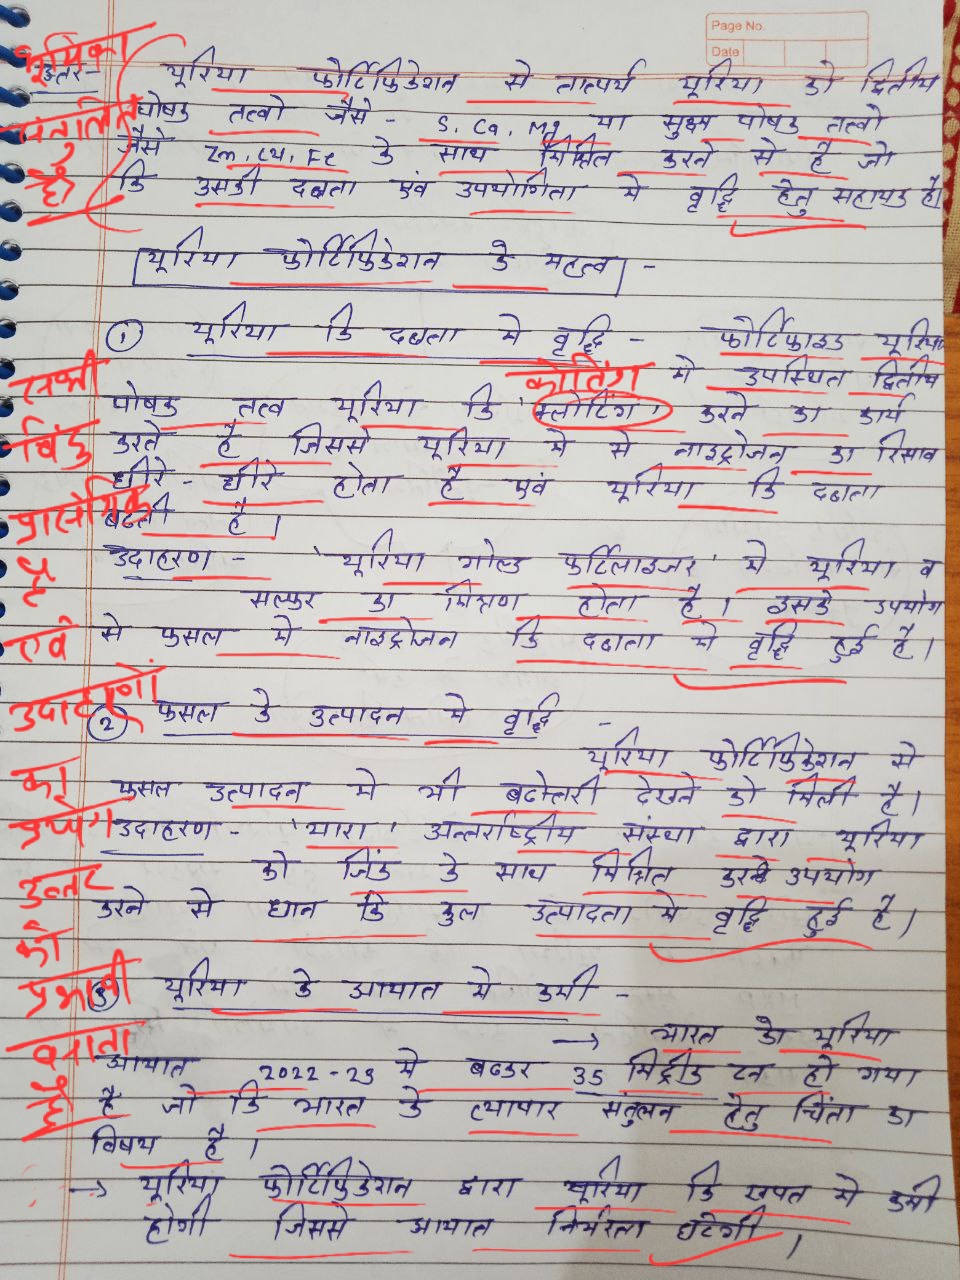 Page No.
Date
भूमिका
संतुलित
है।
उत्तर- यूरिया फोर्टिफिकेशन से तात्पर्य यूरिया को द्वितीय
पोषक तत्वो जैसे - S, Ca, Mg या सुक्ष्म पोषक तत्वो
जैसे Zn, Cu, Fe के साथ मिश्रित करने से है जो
कि उसकी दक्षता एवं उपयोगिता मे वृद्धि हेतु सहायक है।
यूरिया फोर्टिफिकेशन के महत्व -
① यूरिया कि दक्षता मे वृद्धि - फोर्टिफाइड यूरिया
कोटिंग
मे उपस्थित द्वितीय
पोषक तत्व यूरिया कि 'क्लोटिंग' करने का कार्य
करते है जिससे यूरिया मे से नाइट्रोजन का रिसाव
धीरे - धीरे होता है एवं यूरिया कि दक्षता
बढती है।
उदाहरण - 'यूरिया गोल्ड फर्टिलाइजर' मे यूरिया व
सल्फर का मिश्रण होता है। इसके उपयोग
से फसल मे नाइट्रोजन कि दक्षता मे वृद्धि हुई है।
② फसल के उत्पादन मे वृद्धि -
यूरिया फोर्टिफिकेशन से
फसल उत्पादन मे भी बढोत्तरी देखने को मिली है।
उदाहरण - 'यारा' अन्तर्राष्ट्रीय संस्था द्वारा यूरिया
को जिंक के साथ मिश्रित करके उपयोग
करने से धान कि कुल उत्पादता मे वृद्धि हुई है।
③ यूरिया के आयात मे कमी -
→ भारत का यूरिया
आयात 2022-23 मे बढकर 35 मिट्रीक टन हो गया
है जो कि भारत के व्यापार संतुलन हेतु चिंता का
विषय है।
→ यूरिया फोर्टिफिकेशन द्वारा यूरिया कि खपत मे कमी
होगी जिससे आयात निर्भरता घटेगी।
सभी
बिंदु
प्रासंगिक
है
एवं
उदाहरणों
का
उत्तर
को
प्रभावी
बनाता
है।